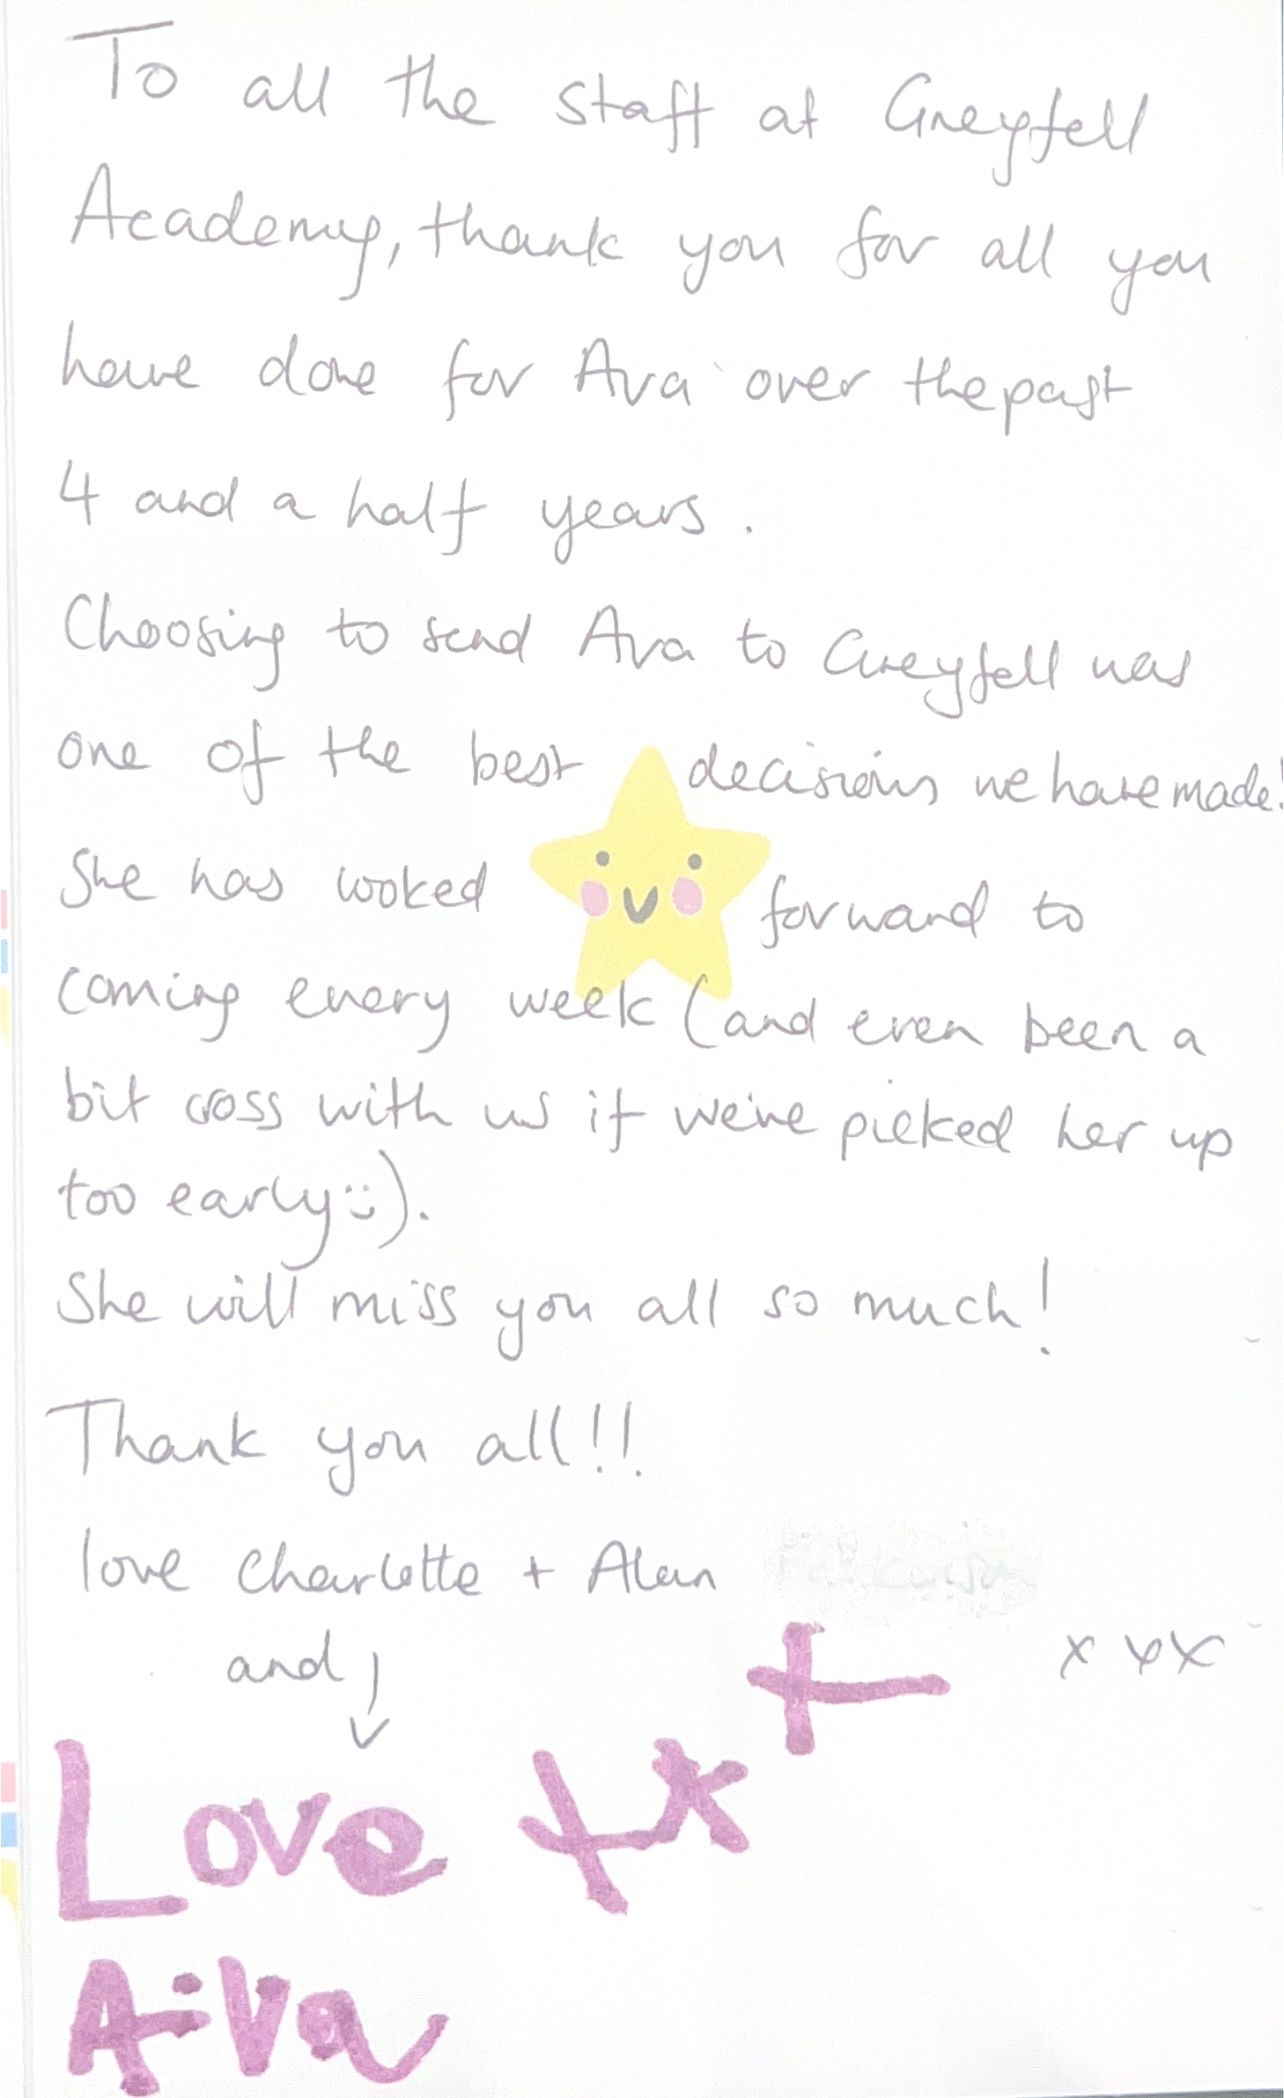 To all the staff at Greyfell
Academy, thank you for all you
have done for Ava over the past
4 and a half years.
Choosing to send Ava to Greyfell was
one of the best decisions we have made!
She has looked forward to
coming every week (and even been a
bit cross with us if we've picked her up
too early :)).
She will miss you all so much!
Thank you all!!
love Charlotte + Alan
and
x x x
Love xxx
Ava